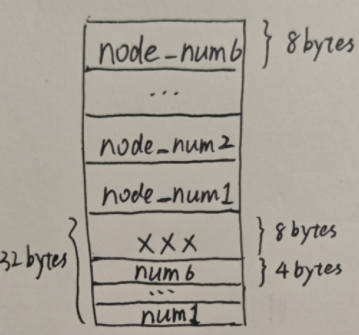 node_num6 8 bytes
...
node_num2
node_num1
XXX 8 bytes
32 bytes
num6 4 bytes
...
num1